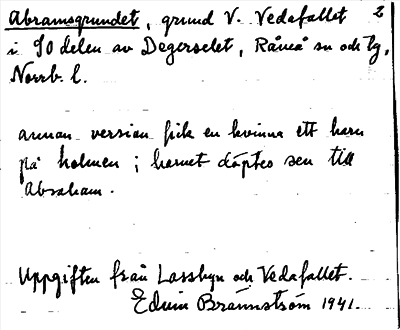 Abramsgrundet, grund V. Vedafallet 2
i SO delen av Degerselet, Råneå sn och tg,
Norrb. l.
annan version fick en kvinna ett barn
på holmen ; barnet döptes sen till
Abraham.
Uppgiften från Lassbyn och Vedafallet.
Edvin Brännström 1941.